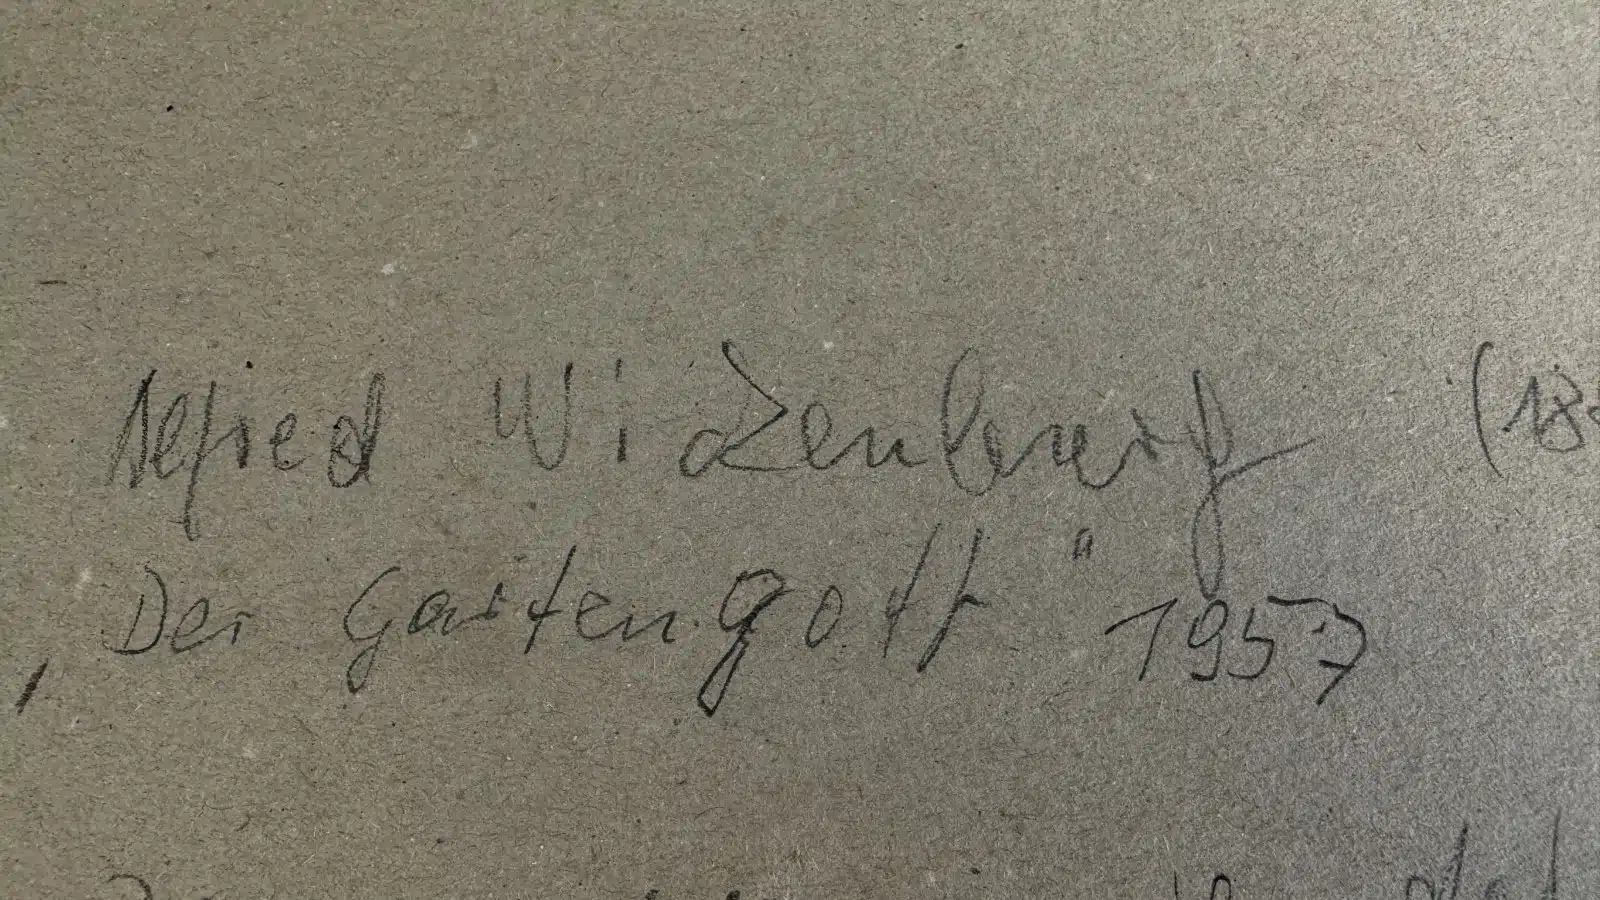 Alfred Wickenburg (18
„Der Gartengott" 1957